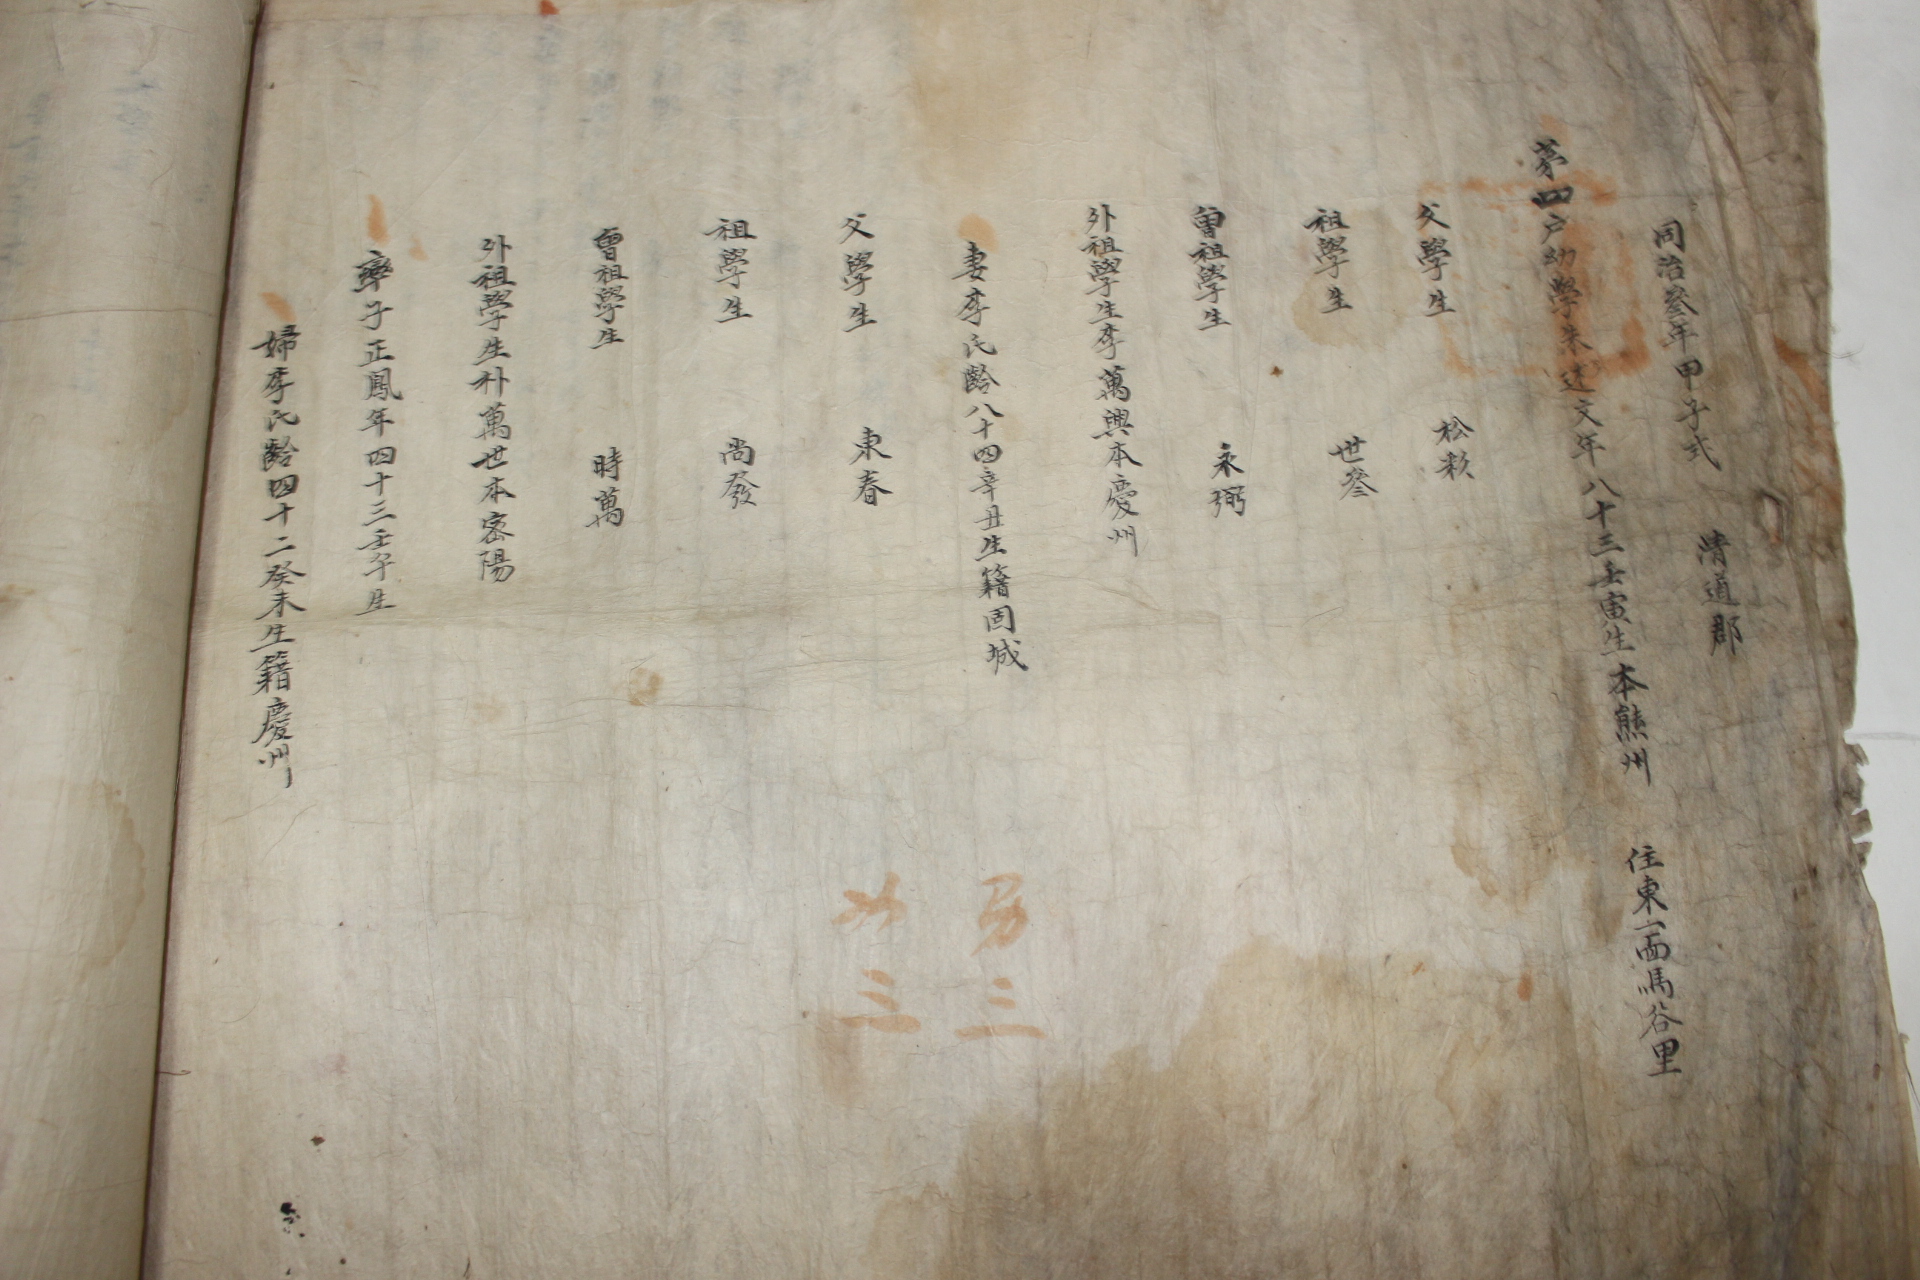 同治叄年甲子式 清道郡
第四戶幼學朱達文年八十三壬寅生本熊州 住東一面馬谷里
父學生 松
祖學生 世叅
曾祖學生 永弼
外祖學生李萬興本慶州
妻李氏齡八十四辛丑生籍固城
父學生 東春
祖學生 尚發
曾祖學生 時萬
外祖學生朴萬世本密陽
率子正鳳年四十三壬午生
婦李氏齡四十二癸未生籍慶州
男三
女三